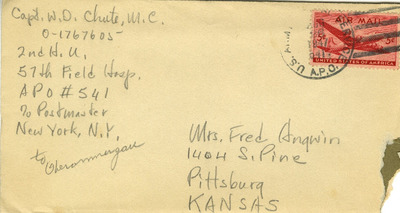 Capt. W. D. Chute, M.C.
O-1767605
2nd H.U.
57th Field Hosp.
APO # 541
℅ Postmaster
New York, N.Y.
to Oberammergau
AIR MAIL
5¢ 5¢
UNITED STATES OF AMERICA
U.S. A.P.O.
Mrs. Fred Angwin
1404 S. Pine
Pittsburg
KANSAS